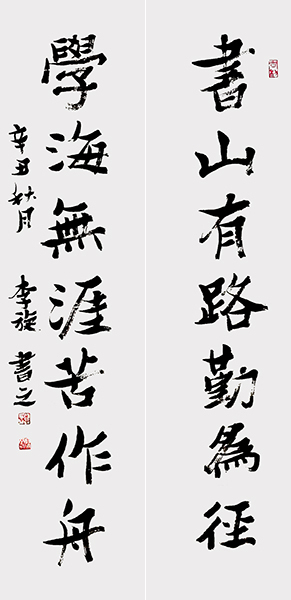 書山有路勤為徑
學海無涯苦作舟
辛丑秋月
李旋書之